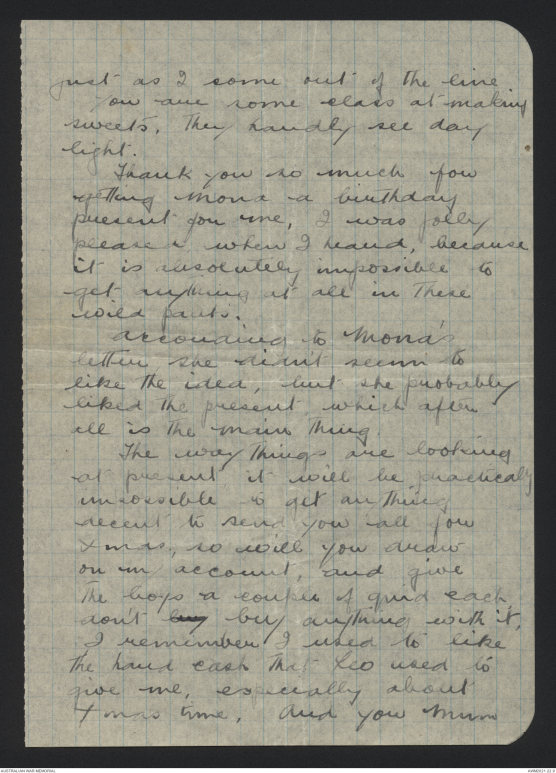 just as I come out of the line
You are some class at making
sweets, They hardly see day
light.
Thank you so much for
getting Mona a birthday
present for me, I was jolly
pleased when I heard, because
it is absolutely impossible to
get anything at all in these
wild parts.
According to Mona's
letter she didn't seem to
like the idea, but she probably
liked the present, which after
all is the main thing.
The way things are looking
at present, it will be practically
impossible to get anything
decent to send you all for
Xmas, so will you draw
on my account, and give
the boys a couple of quid each
don't buy buy anything with it,
I remember I used to like
the hard cash that Leo used to
give me, especially about
Xmas time. And you Mum
AUSTRALIAN WAR MEMORIAL